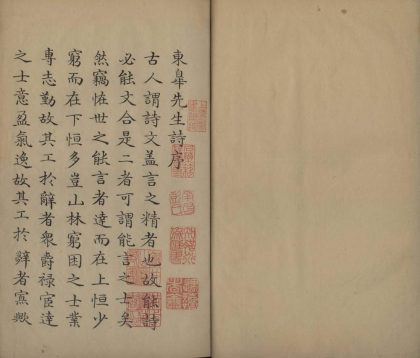 東皐先生詩序
古人謂詩文盖言之精者也故能詩
必能文合是二者可謂能言之士矣
然竊恠世之能言者達而在上恒少
窮而在下恒多豈山林窮困之士業
專志勤故其工於辭者衆爵禄宦達
之士意盈氣逸故其工於辭者寡歟